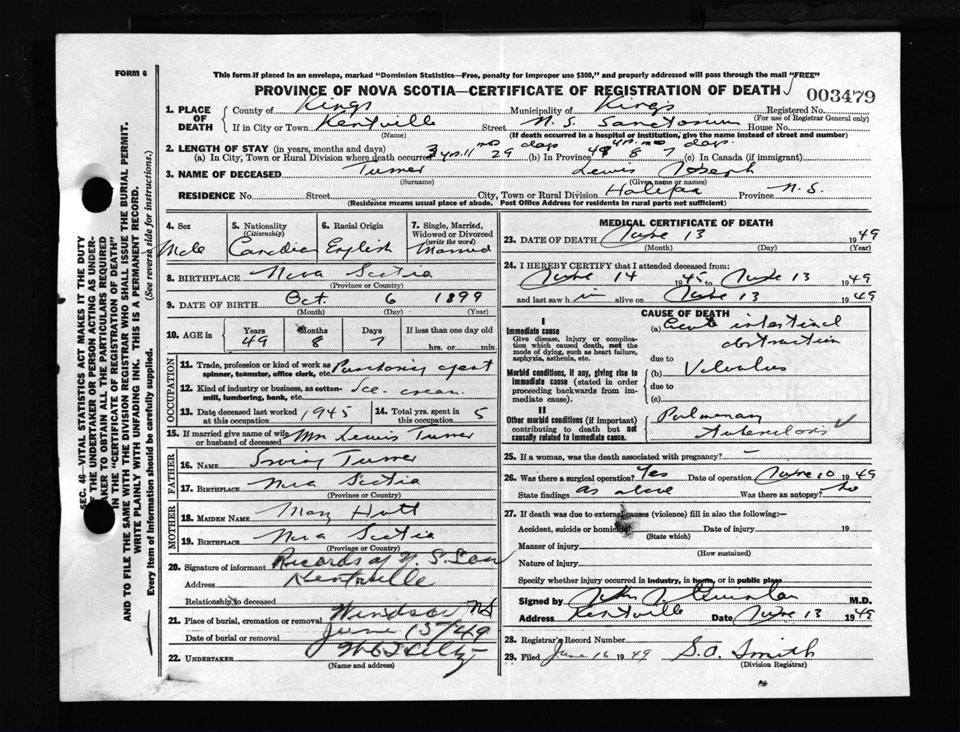 FORM 6
This form if placed in an envelope, marked "Dominion Statistics—Free, penalty for improper use $300," and properly addressed will pass through the mail "FREE"
PROVINCE OF NOVA SCOTIA—CERTIFICATE OF REGISTRATION OF DEATH
003479
1. PLACE OF DEATH County of Kings Municipality of Kings Registered No.
(For use of Registrar General only)
If in City or Town Kentville Street N. S. Sanatorium House No.
(Name) (If death occurred in a hospital or institution, give the name instead of street and number)
2. LENGTH OF STAY (in years, months and days)
(a) In City, Town or Rural Division where death occurred 3 yrs. 11 mo 29 days (b) In Province 49 yrs 8 mo 7 days (c) In Canada (if immigrant)
3. NAME OF DECEASED Turner Lewis Joseph
(Surname) (Given name or names)
RESIDENCE No. Street City, Town or Rural Division Halifax Province N. S.
(Residence means usual place of abode. Post Office Address for residents in rural parts not sufficient)
4. Sex Male
5. Nationality (Citizenship) Canadian
6. Racial Origin English
7. Single, Married, Widowed or Divorced (write the word) Married
8. BIRTHPLACE Nova Scotia
(Province or Country)
9. DATE OF BIRTH Oct 6 1899
(Month) (Day) (Year)
10. AGE in Years 49 Months 8 Days 7 If less than one day old hrs. or min.
OCCUPATION
11. Trade, profession or kind of work as spinner, teamster, office clerk, etc.
12. Kind of industry or business, as cotton-mill, lumbering, bank, etc. Ice cream
13. Date deceased last worked at this occupation 1945
14. Total yrs. spent in this occupation 5
15. If married give name of wife or husband of deceased Mrs Lewis Turner
FATHER
16. NAME Irving Turner
17. BIRTHPLACE Nova Scotia
(Province or Country)
MOTHER
18. MAIDEN NAME Mary
19. BIRTHPLACE Nova Scotia
(Province or Country)
20. Signature of informant Records of N. S. San
Address Kentville
Relationship to deceased
21. Place of burial, cremation or removal Windsor NS
Date of burial or removal June 15/49
22. UNDERTAKER
(Name and address)
MEDICAL CERTIFICATE OF DEATH
23. DATE OF DEATH June 13 1949
(Month) (Day) (Year)
24. I HEREBY CERTIFY that I attended deceased from:
June 14 1945 to June 13 1949
and last saw him alive on June 13 1949
CAUSE OF DEATH
I
Immediate cause (a) Acute intestinal obstruction
Give disease, injury or complication which caused death, not the mode of dying, such as heart failure, asphyxia, asthenia, etc.
due to
Morbid conditions, if any, giving rise to immediate cause (stated in order proceeding backwards from immediate cause).
(b) Volvulus
due to
(c)
II
Other morbid conditions (if important) contributing to death but not causally related to immediate cause.
Pulmonary Tuberculosis
25. If a woman, was the death associated with pregnancy? —
26. Was there a surgical operation? Yes Date of operation June 10 1949
State findings as above Was there an autopsy? No
27. If death was due to external causes (violence) fill in also the following:—
Accident, suicide or homicide Date of injury 19
(State which)
Manner of injury
(How sustained)
Nature of injury
Specify whether injury occurred in industry, in home, or in public place
Signed by John J Quinlan M.D.
Address Kentville Date June 13 1949
28. Registrar's Record Number
29. Filed June 16 1949 S. A. Smith
(Division Registrar)
SEC. 46—VITAL STATISTICS ACT MAKES IT THE DUTY
OF THE UNDERTAKER OR PERSON ACTING AS UNDERTAKER TO OBTAIN ALL THE PARTICULARS REQUIRED
IN THE "CERTIFICATE OF REGISTRATION OF DEATH"
AND TO FILE THE SAME WITH THE DIVISION REGISTRAR WHO SHALL ISSUE THE BURIAL PERMIT.
WRITE PLAINLY WITH UNFADING INK. THIS IS A PERMANENT RECORD.
Every item of information should be carefully supplied. (See reverse side for instructions.)